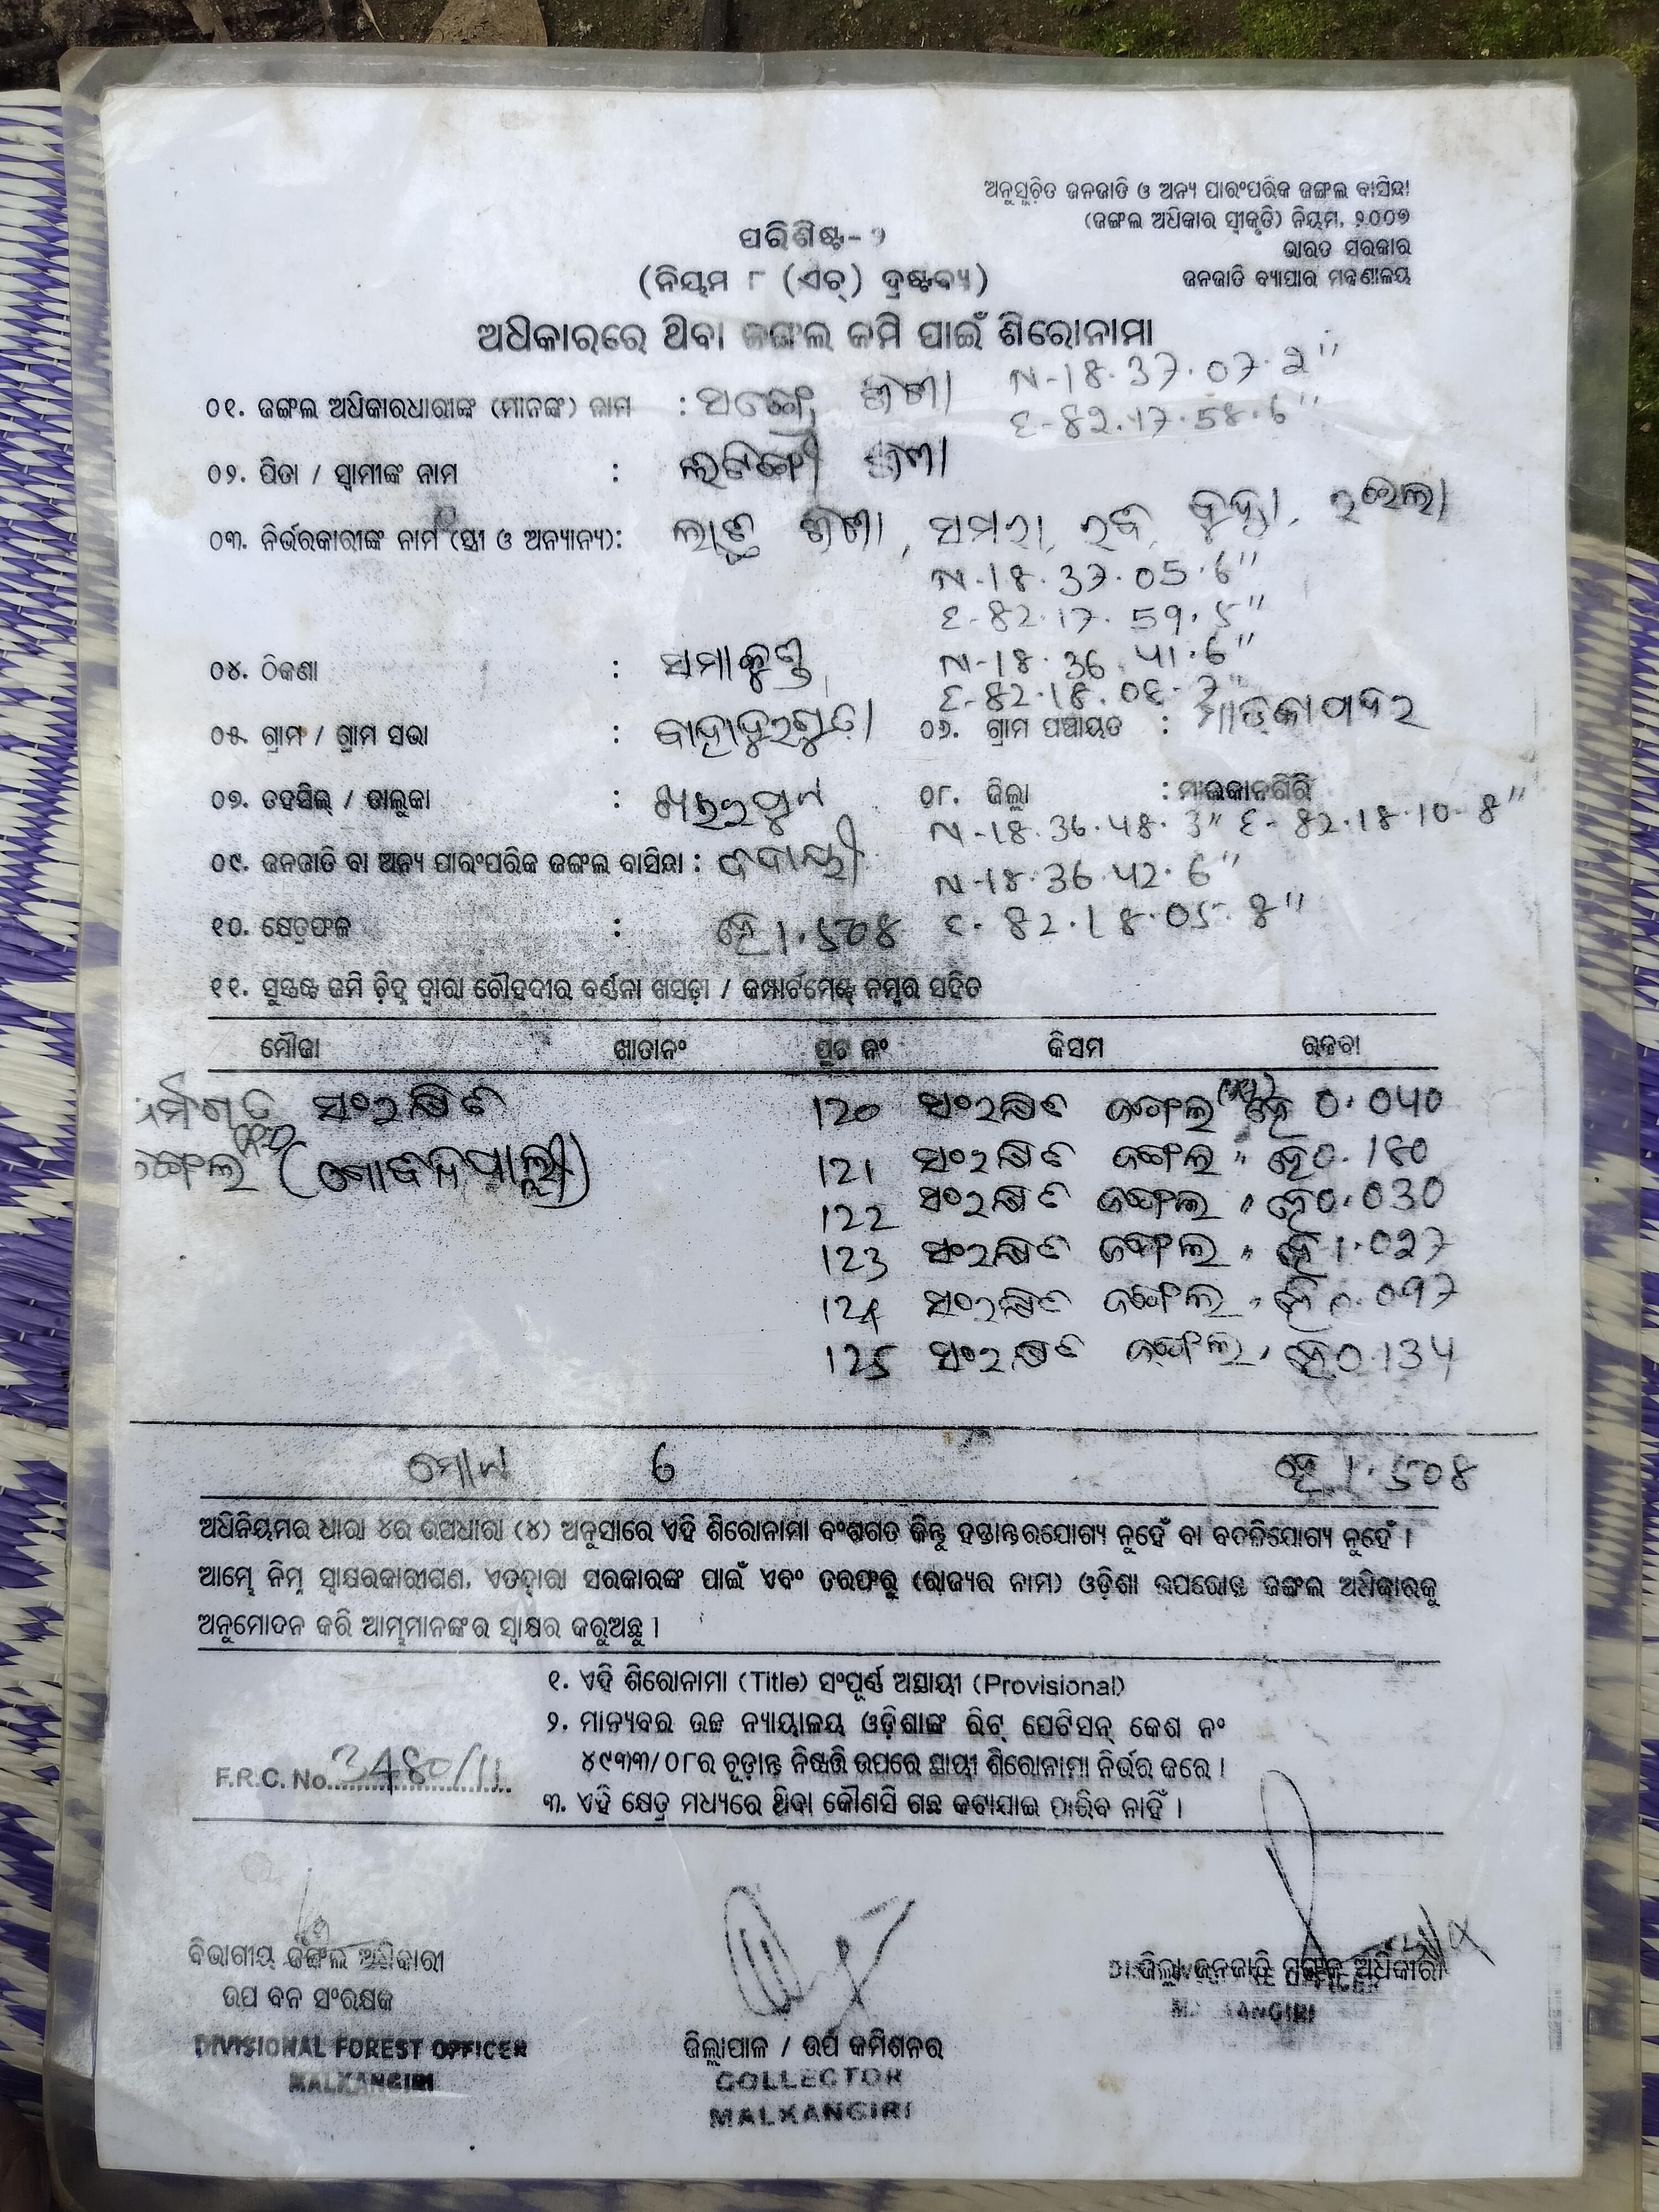 ଅନୁସୂଚିତ ଜନଜାତି ଓ ଅନ୍ୟ ପାରଂପରିକ ଜଙ୍ଗଲ ବାସିନ୍ଦା
(ଜଙ୍ଗଲ ଅଧିକାର ସ୍ୱୀକୃତି) ନିୟମ, ୨୦୦୭
ଭାରତ ସରକାର
ଜନଜାତି ବ୍ୟାପାର ମନ୍ତ୍ରଣାଳୟ
ପରିଶିଷ୍ଟ-୨
(ନିୟମ ୮ (ଏଚ୍) ଦ୍ରଷ୍ଟବ୍ୟ)
ଅଧିକାରରେ ଥିବା ଜଙ୍ଗଲ ଜମି ପାଇଁ ଶିରୋନାମା
N-18.37.07.2"
୦୧. ଜଙ୍ଗଲ ଅଧିକାରଧାରୀଙ୍କ (ମାନଙ୍କ) ନାମ :
E-82.17.58.6"
୦୨. ପିତା / ସ୍ୱାମୀଙ୍କ ନାମ :
୦୩. ନିର୍ଭରକାରୀଙ୍କ ନାମ (ସ୍ତ୍ରୀ ଓ ଅନ୍ୟାନ୍ୟ):
N-18.37.05.6"
E-82.17.59.5"
୦୪. ଠିକଣା : ସମାକୁଣ୍ଡ N-18.36.41.6"
E-82.18.08.7"
୦୫. ଗ୍ରାମ / ଗ୍ରାମ ସଭା : ବାହାଦୁରଗୁଡ଼ା ୦୬. ଗ୍ରାମ ପଞ୍ଚାୟତ :
୦୭. ତହସିଲ୍ / ତାଲୁକା : ଖଇରପୁଟ ୦୮. ଜିଲ୍ଲା : ମାଲକାନଗିରି
N-18.36.48.3" E-82.18.10.8"
୦୯. ଜନଜାତି ବା ଅନ୍ୟ ପାରଂପରିକ ଜଙ୍ଗଲ ବାସିନ୍ଦା : N-18.36.42.6"
୧୦. କ୍ଷେତ୍ରଫଳ : ହେ 1.508 E-82.18.05.8"
୧୧. ସୁସ୍ପଷ୍ଟ ଜମି ଚିହ୍ନ ଦ୍ୱାରା ଚୌହଦୀର ବର୍ଣ୍ଣନା ଖସଡ଼ା / କମ୍ପାର୍ଟମେଣ୍ଟ ନମ୍ବର ସହିତ
ମୌଜା ଖାତାନଂ ପ୍ଲଟ ନଂ କିସମ ରକବା
ସଂରକ୍ଷିତ 120 ସଂରକ୍ଷିତ ଜଙ୍ଗଲ ହେ 0.040
ଜଙ୍ଗଲ 121 ସଂରକ୍ଷିତ ଜଙ୍ଗଲ " ହେ 0.180
122 ସଂରକ୍ଷିତ ଜଙ୍ଗଲ " ହେ 0.030
123 ସଂରକ୍ଷିତ ଜଙ୍ଗଲ " ହେ 1.027
124 ସଂରକ୍ଷିତ ଜଙ୍ଗଲ " ହେ 0.097
125 ସଂରକ୍ଷିତ ଜଙ୍ଗଲ " ହେ 0.134
ମୋଟ 6 ହେ 1.508
ଅଧିନିୟମର ଧାରା ୪ର ଉପଧାରା (୪) ଅନୁସାରେ ଏହି ଶିରୋନାମା ବଂଶଗତ କିନ୍ତୁ ହସ୍ତାନ୍ତରଯୋଗ୍ୟ ନୁହେଁ ବା ବଦଳିଯୋଗ୍ୟ ନୁହେଁ ।
ଆମ୍ଭେ ନିମ୍ନ ସ୍ୱାକ୍ଷରକାରୀଗଣ, ଏତଦ୍ଦ୍ୱାରା ସରକାରଙ୍କ ପାଇଁ ଏବଂ ତରଫରୁ (ରାଜ୍ୟର ନାମ) ଓଡ଼ିଶା ଉପରୋକ୍ତ ଜଙ୍ଗଲ ଅଧିକାରକୁ
ଅନୁମୋଦନ କରି ଆମ୍ଭମାନଙ୍କର ସ୍ୱାକ୍ଷର କରୁଅଛୁ ।
୧. ଏହି ଶିରୋନାମା (Title) ସଂପୂର୍ଣ୍ଣ ଅସ୍ଥାୟୀ (Provisional)
୨. ମାନ୍ୟବର ଉଚ୍ଚ ନ୍ୟାୟାଳୟ ଓଡ଼ିଶାଙ୍କ ରିଟ୍ ପେଟିସନ୍ କେଶ ନଂ
୪୯୩୩/୦୮ର ଚୂଡ଼ାନ୍ତ ନିଷ୍ପତ୍ତି ଉପରେ ସ୍ଥାୟୀ ଶିରୋନାମା ନିର୍ଭର କରେ ।
F.R.C. No. 3480/11
୩. ଏହି କ୍ଷେତ୍ର ମଧ୍ୟରେ ଥିବା କୌଣସି ଗଛ କଟାଯାଇ ପାରିବ ନାହିଁ ।
ବିଭାଗୀୟ ଜଙ୍ଗଲ ଅଧିକାରୀ
ଉପ ବନ ସଂରକ୍ଷକ
DIVISIONAL FOREST OFFICER
MALKANGIRI
ଜିଲ୍ଲାପାଳ / ଉପ କମିଶନର
COLLECTOR
MALKANGIRI
ଜିଲ୍ଲା ଜନଜାତି ମଙ୍ଗଳ ଅଧିକାରୀ
MALKANGIRI